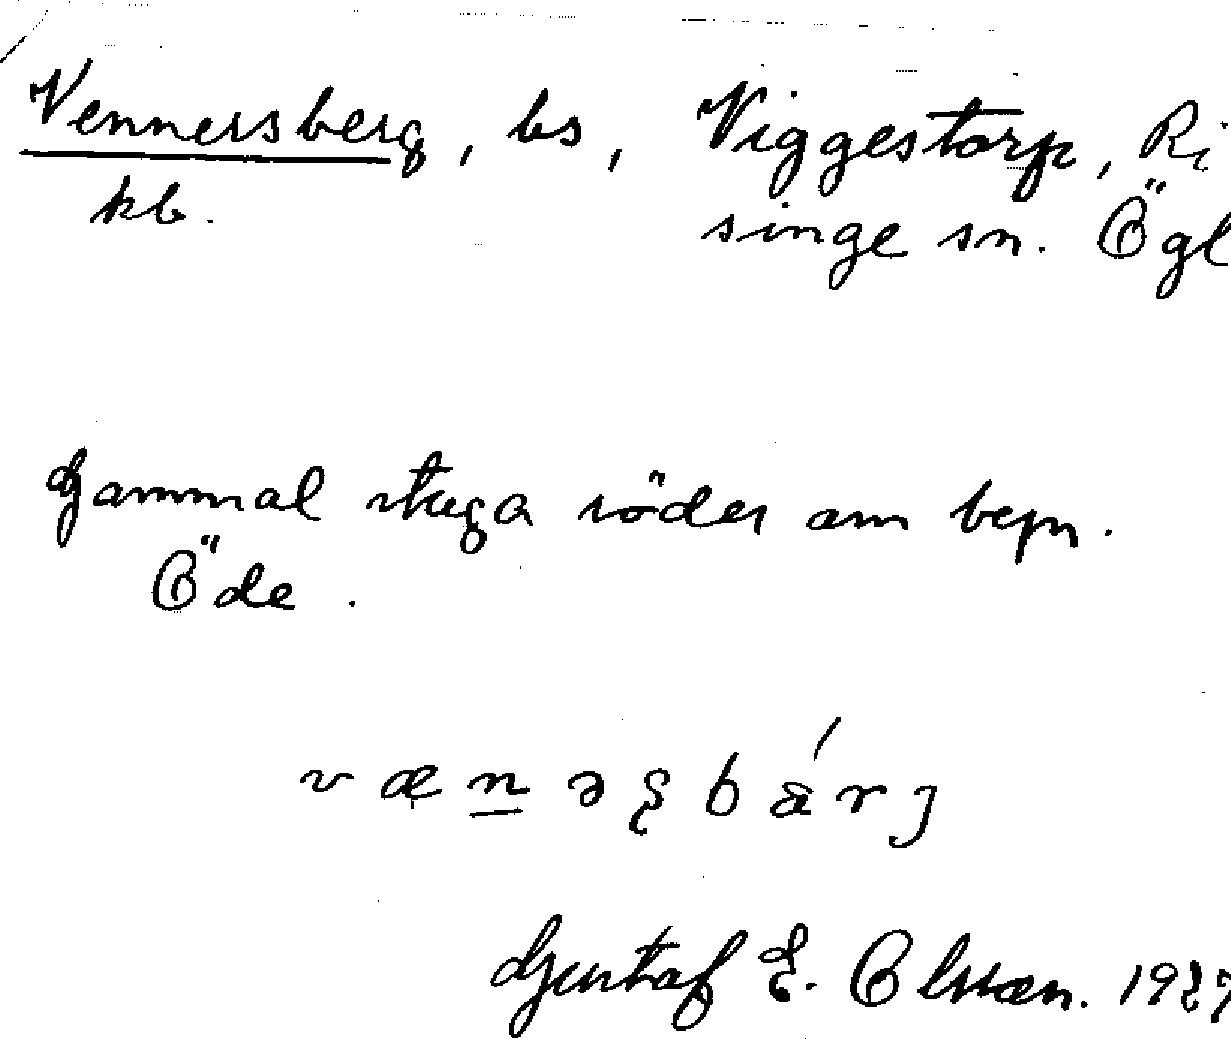 Vennersberg, bs, Viggestorp, Ri
kb. singe sn. Ögl
Gammal stuga söder om bepn.
Öde.
væ̣n̲əʂbä́rj
Gustaf E. Olsson. 1927